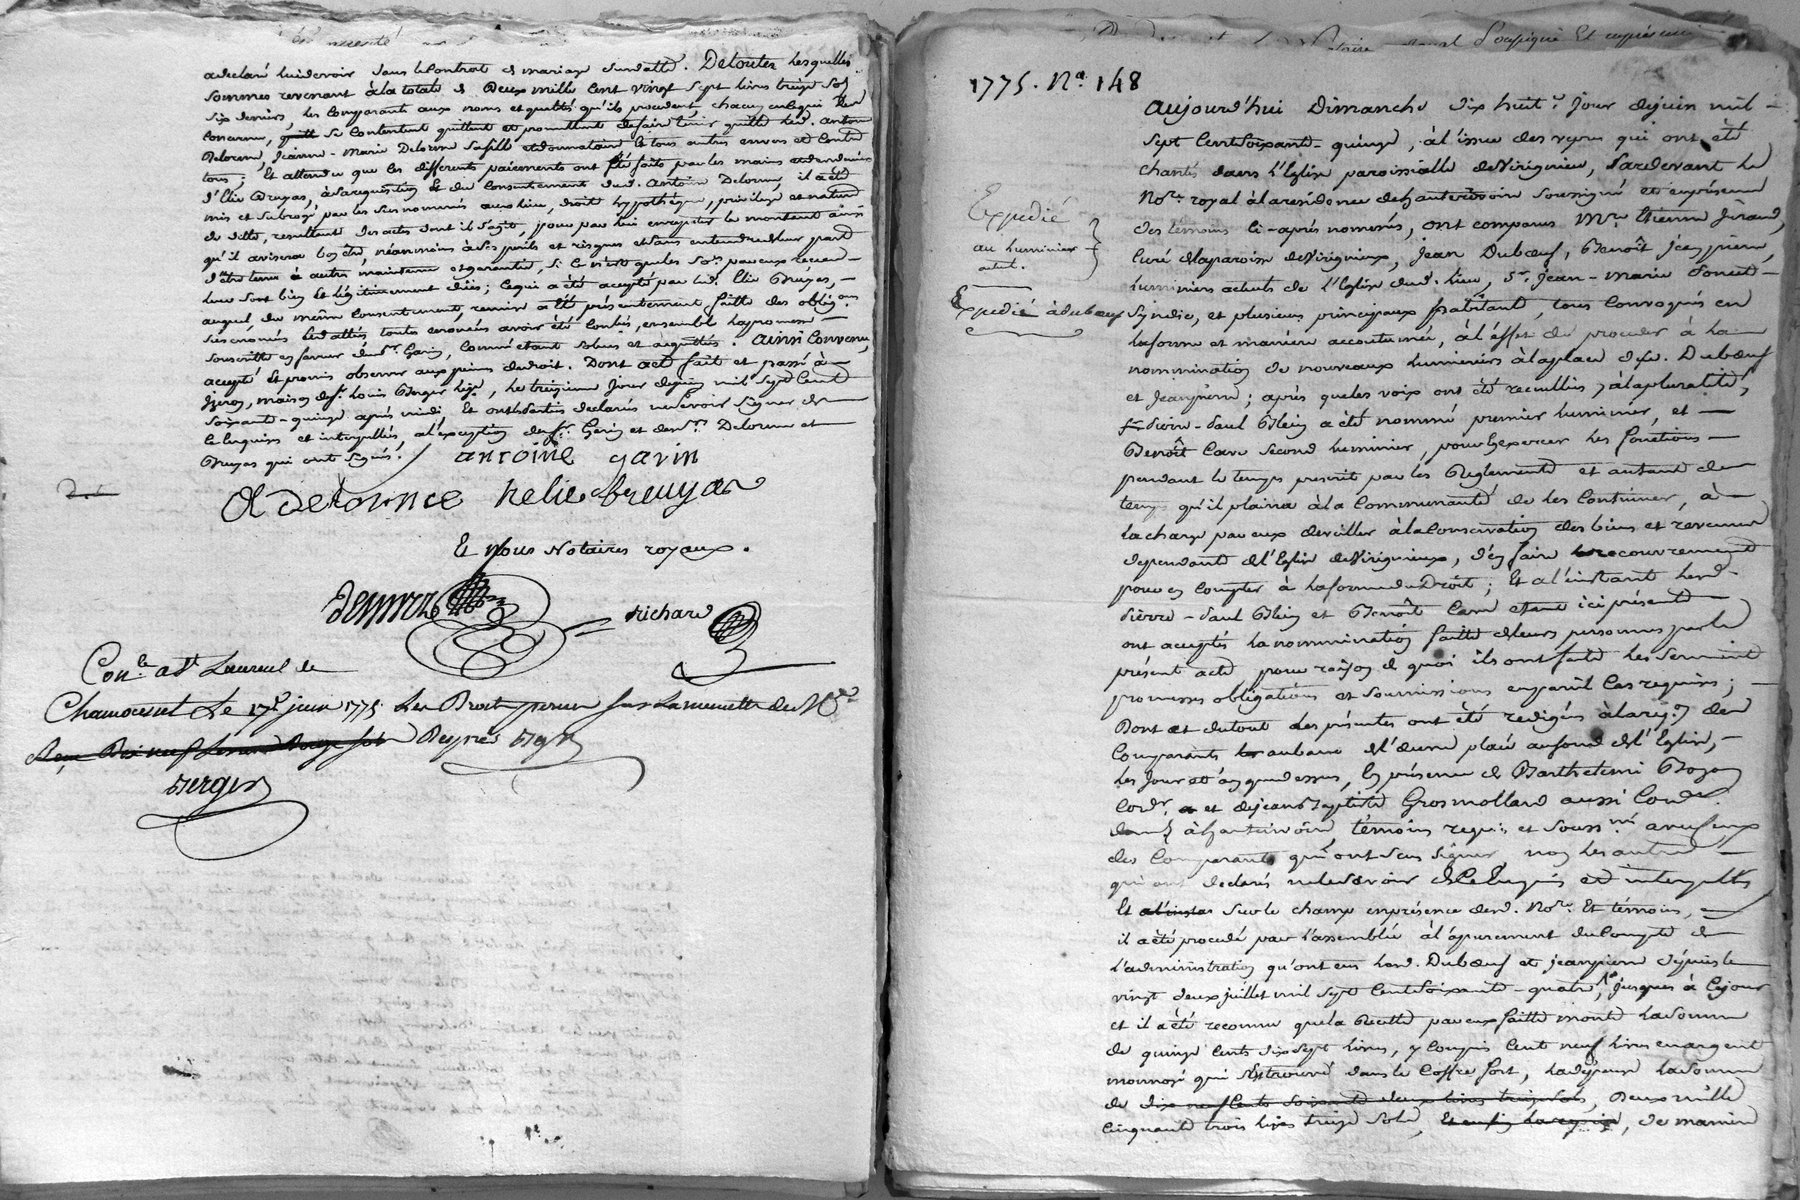 a declaré lui devoir dans le Contrat de mariage susdatté. De toutes lesquelles
sommes revenant à la totale de Deux mille Cent vingt sept livres treize sols
six deniers, les Comparants aux noms et qualités qu'ils procedent, chacun en ce qui les
Concerne, se Contentent quittent et promettent de faire tenir quitte led. antoine
Delorme, Jeanne-Marie Delorme sa fille et donnataire et tous autres envers et Contre
tous; Et attendu que les differents paiements ont été faits par les mains et deniers
d'Elie Bruyas, à sa requisition et du Consentement dud. antoine Delorme, il a été
mis et subrogé par les sus nommés aux lieu, droit, hypothéque, privilége et nature
de dette, resultant des actes dont il s'agit, pour par lui en repeter le montant ainsi
qu'il avisera bon être, néanmoins à ses perils et risques et sans
d'être tenus à autre maintenue et garentie, si ce n'est que les so.es par eux recues
leur sont bien et légitimement dües; ce qui a été accepté par led. Elie Bruyas,
auquel du même Consentement, remise a été présentement faitte des oblig.ons
souscritte en faveur dud. s.r Gavin, comme étant solues et acquittés. Ainsi Convenu,
accepté et promis observer aux peines de droit. Dont acte fait et passé à
maison de s.r Louis Berger le treizieme Jour de juin mil sept Cent
soixante-quinze après midi Et ont les parties declarés ne savoir signer de
ce enquises et interpellées, à l'exception des s.r Gavin et desd. Delorme et
Bruyas qui ont signés.
antoine gavin
A Delorme helie bruyas
Et Nous Notaires royaux.
Richard
Con.lé a St Laurent de
Chamousset Le 17.e juin 1775 Les Droits perçus sur la minutte de M.e
Berger
1775. N.o 148
Expedié
au luminier
actuel.
Expedié à duboeuf
Aujourd'hui Dimanche dix huit.e jour de juin mil
sept Cent soixante-quinze, à l'issue des vepres qui ont été
chantés dans l'Eglise paroissialle de Virignieu, Pardevant le
No.re royal à la résidence de hauterivoire soussigné et en présence
des témoins ci-après nommés, ont comparus M.re Etienne Giraud,
Curé de la paroisse de Virignieux, Jean Duboeuf, Benoît Jeanpierre,
luminiers actuels de l'Eglise dud. lieu, S.r Jean-Marie
Syndic, et plusieurs principaux habitant, tous Convoqués en
la forme et manière accoutumée, à l'éffet de proceder à la
nommination de nouveaux luminiers à la place desd. Duboeuf
et Jeanpierre; après que les voix ont été recuillies, à la pluralité,
Pierre-Paul Blein a été nommé premier luminier, et
Benoît Carre second luminier, pour exercer les fonctions
pendant le temps prescrit par les Reglements et autant de
temps qu'il plaira à la Communauté de les Continuer, à
la charge par eux de veiller à la Conservation des biens et revenus
dependants de l'Eglise de Virignieux, d'en faire le recouvrement
pour en Compter à la forme du Droit; Et à l'instant lesd.
Pierre-Paul Blein et Benoît Carre étant ici présents
ont acceptés la nommination faitte de leurs personnes par le
présent acte pour raison de quoi ils ont faits les serments
promesses obligations et soumissions en pareil Cas requises;
Dont et du tout les présentes ont été redigées à la req.on des
Comparants au banc de l'oeuvre placé au fond de l'Eglise,
les Jour et an que dessus, En présence de Barthelemi Bozon
Cord.r et de jean Baptiste Grosmolland aussi Cord.r
dem.t à hauterivoire, témoins requis et souss.nés avec ceux
des Comparants qui ont sçus signer, non les autres
qui ont declarés ne le savoir de ce Enquis et interpellés
Et a l'instant sur le champ en présence desd. No.re Et témoins,
il a été procedé par l'assemblée à l'apurement du Compte de
l'administration qu'ont eus lesd. Duboeuf et jeanpierre depuis le
vingt deux juillet mil sept Cent soixante-quatre, jusques à Cejour
et il a été reconnu que la Recette par eux faitte monte la somme
de quinze Cents dix sept livres, y Compris Cent neuf livres en argent
monnoyé qui s'est trouvé dans le Coffre fort, la dépense la somme
de dix neuf Cents soixante deux livres treize sols, Deux mille
Cinquante trois livres treize sols, de manière